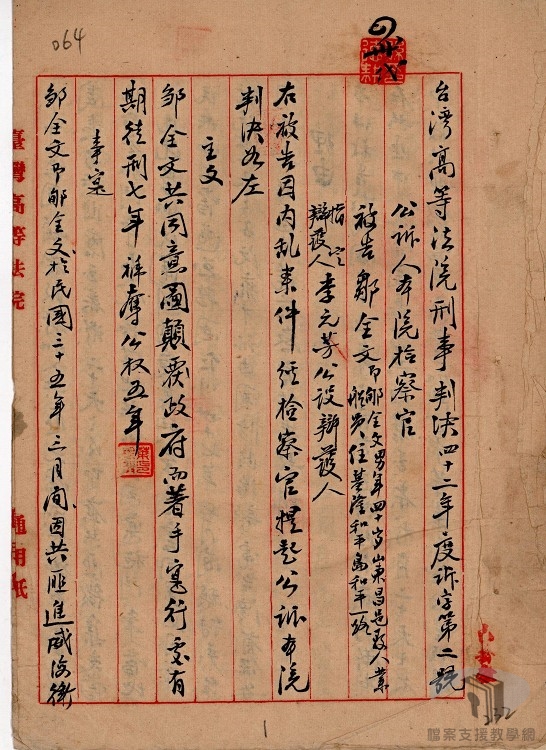 064
台灣高等法院刑事判決四十二年度訴字第二號
公訴人本院檢察官
被告鄒全文即邹全文男年四十歲山東昌邑縣人業
船員住基隆和平島和平一路
指定
辯護人李元芳公設辯護人
右被告因內乱案件經檢察官提起公訴本院
判決如左
主文
鄒全文共同意圖顛覆政府而著手实行處有
期徒刑七年褫奪公权五年
事实
邹全文即鄒全文於民國三十五年三月间因共匪進威海衛
臺灣高等法院
通用紙
1
232
檔案支援教學網